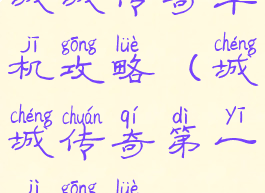 城城传奇单
jī gōng lüè chéng
机攻略（城
chéng chuán qí dì yī
城传奇第一
jī gōng lüè